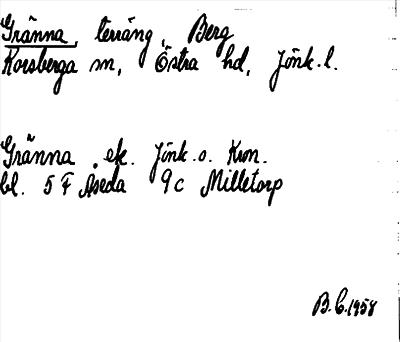 Gränna, terräng, Berg
Korsberga sn, Östra hd, Jönk. l.
Gränna ek. Jönk. o. Kron.
bl. 5 F Åseda 9c Milletorp
B.C. 1958